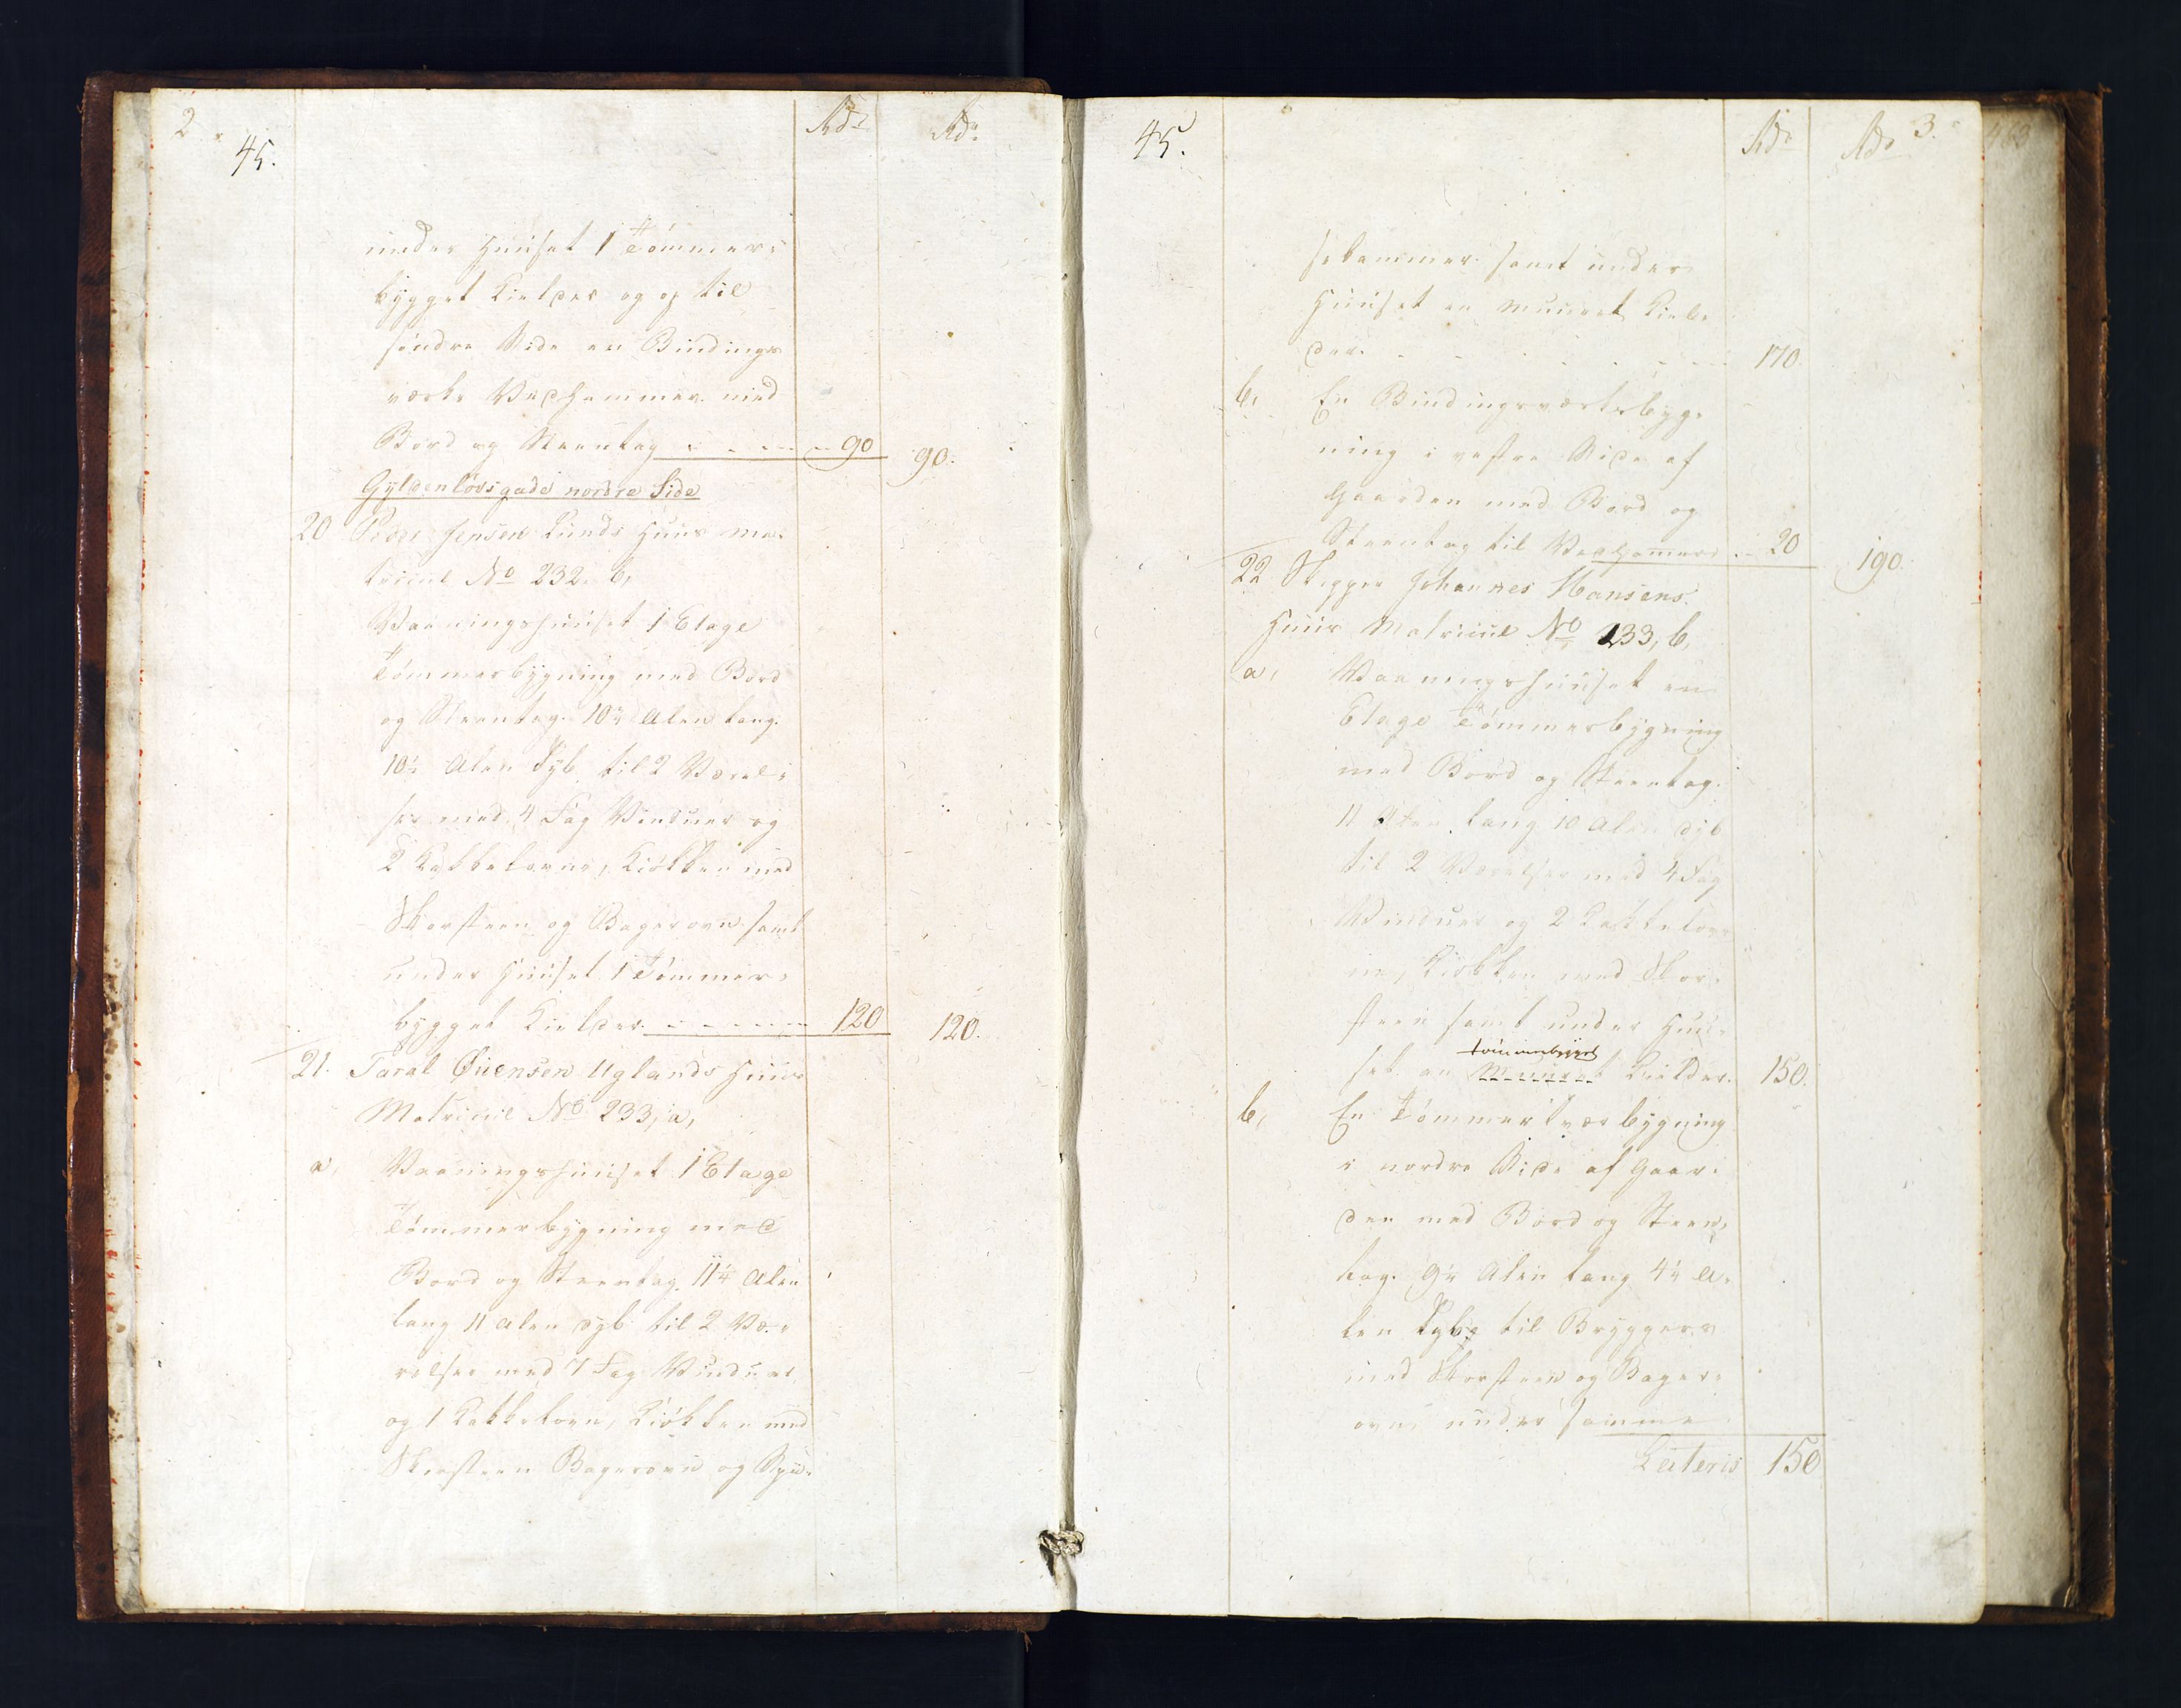 2
45.
Rdr
Rdr
under Huuset 1 Tömmer-
bygget Kielder og op til
söndre Side en Bindings
værks Vedhammer med
Bord og Steentag - - - - 90
90.
Gyldenlövsgade nordre Side
20 Peder Jensen Lunds Huus ma-
tricul No 232. b,
Vaaningshuuset 1 Etage
Tömmerbygning med Bord
og Steentag. 10½ Alen lang.
10½ Alen dyb til 2 Værel-
ser med 4 Fag Vinduer og
2 Kakkelovne, Kiökken med
Skorsteen og Bagerovn samt
under Huuset 1 Tömmer-
bygget Kielder - - - - - 120
120.
21. Taral Ovensen Uglands Huus
Matricul No 233, a,
a, Vaaningshuuset 1 Etage
Tömmerbygning med
Bord og Steentag. 11¼ Alen
lang 11 Alen dyb til 2 Væ-
relser med 7 Fag Vinduer
og 1 Kakkelovn, Kiökken med
Skorsteen Bagerovn og Spi-
45.
Rdr
Rdr 3.
463
sekammer samt under
Huuset en muuret Kiel-
der. - - - - - - - 170.
b, En Bindingsværksbyg-
ning i vestre Side af
Gaarden med Bord og
Steentag til Vedhammer. - 20
190.
22 Skipper Johannes Hansens
Huus Matricul No 233, b,
a, Vaaningshuuset en
Etage Tömmerbygning
med Bord og Steentag.
11 Alen lang 10 Alen dyb
til 2 Værelser med 4 Fag
Vinduer og 2 Kakkelov-
ne, Kiökken med Skor-
steen samt under Huu-
tömmerbygget
set en muuret Kielder. 150.
b, En Tömmertværbygning
i nordre Side af Gaar-
den med Bord og Steen-
tag. 9½ Alen lang 4½ A-
len dyb, til Bryggers
med Skorsteen og Bager-
ovn, under samme
Lateris 150